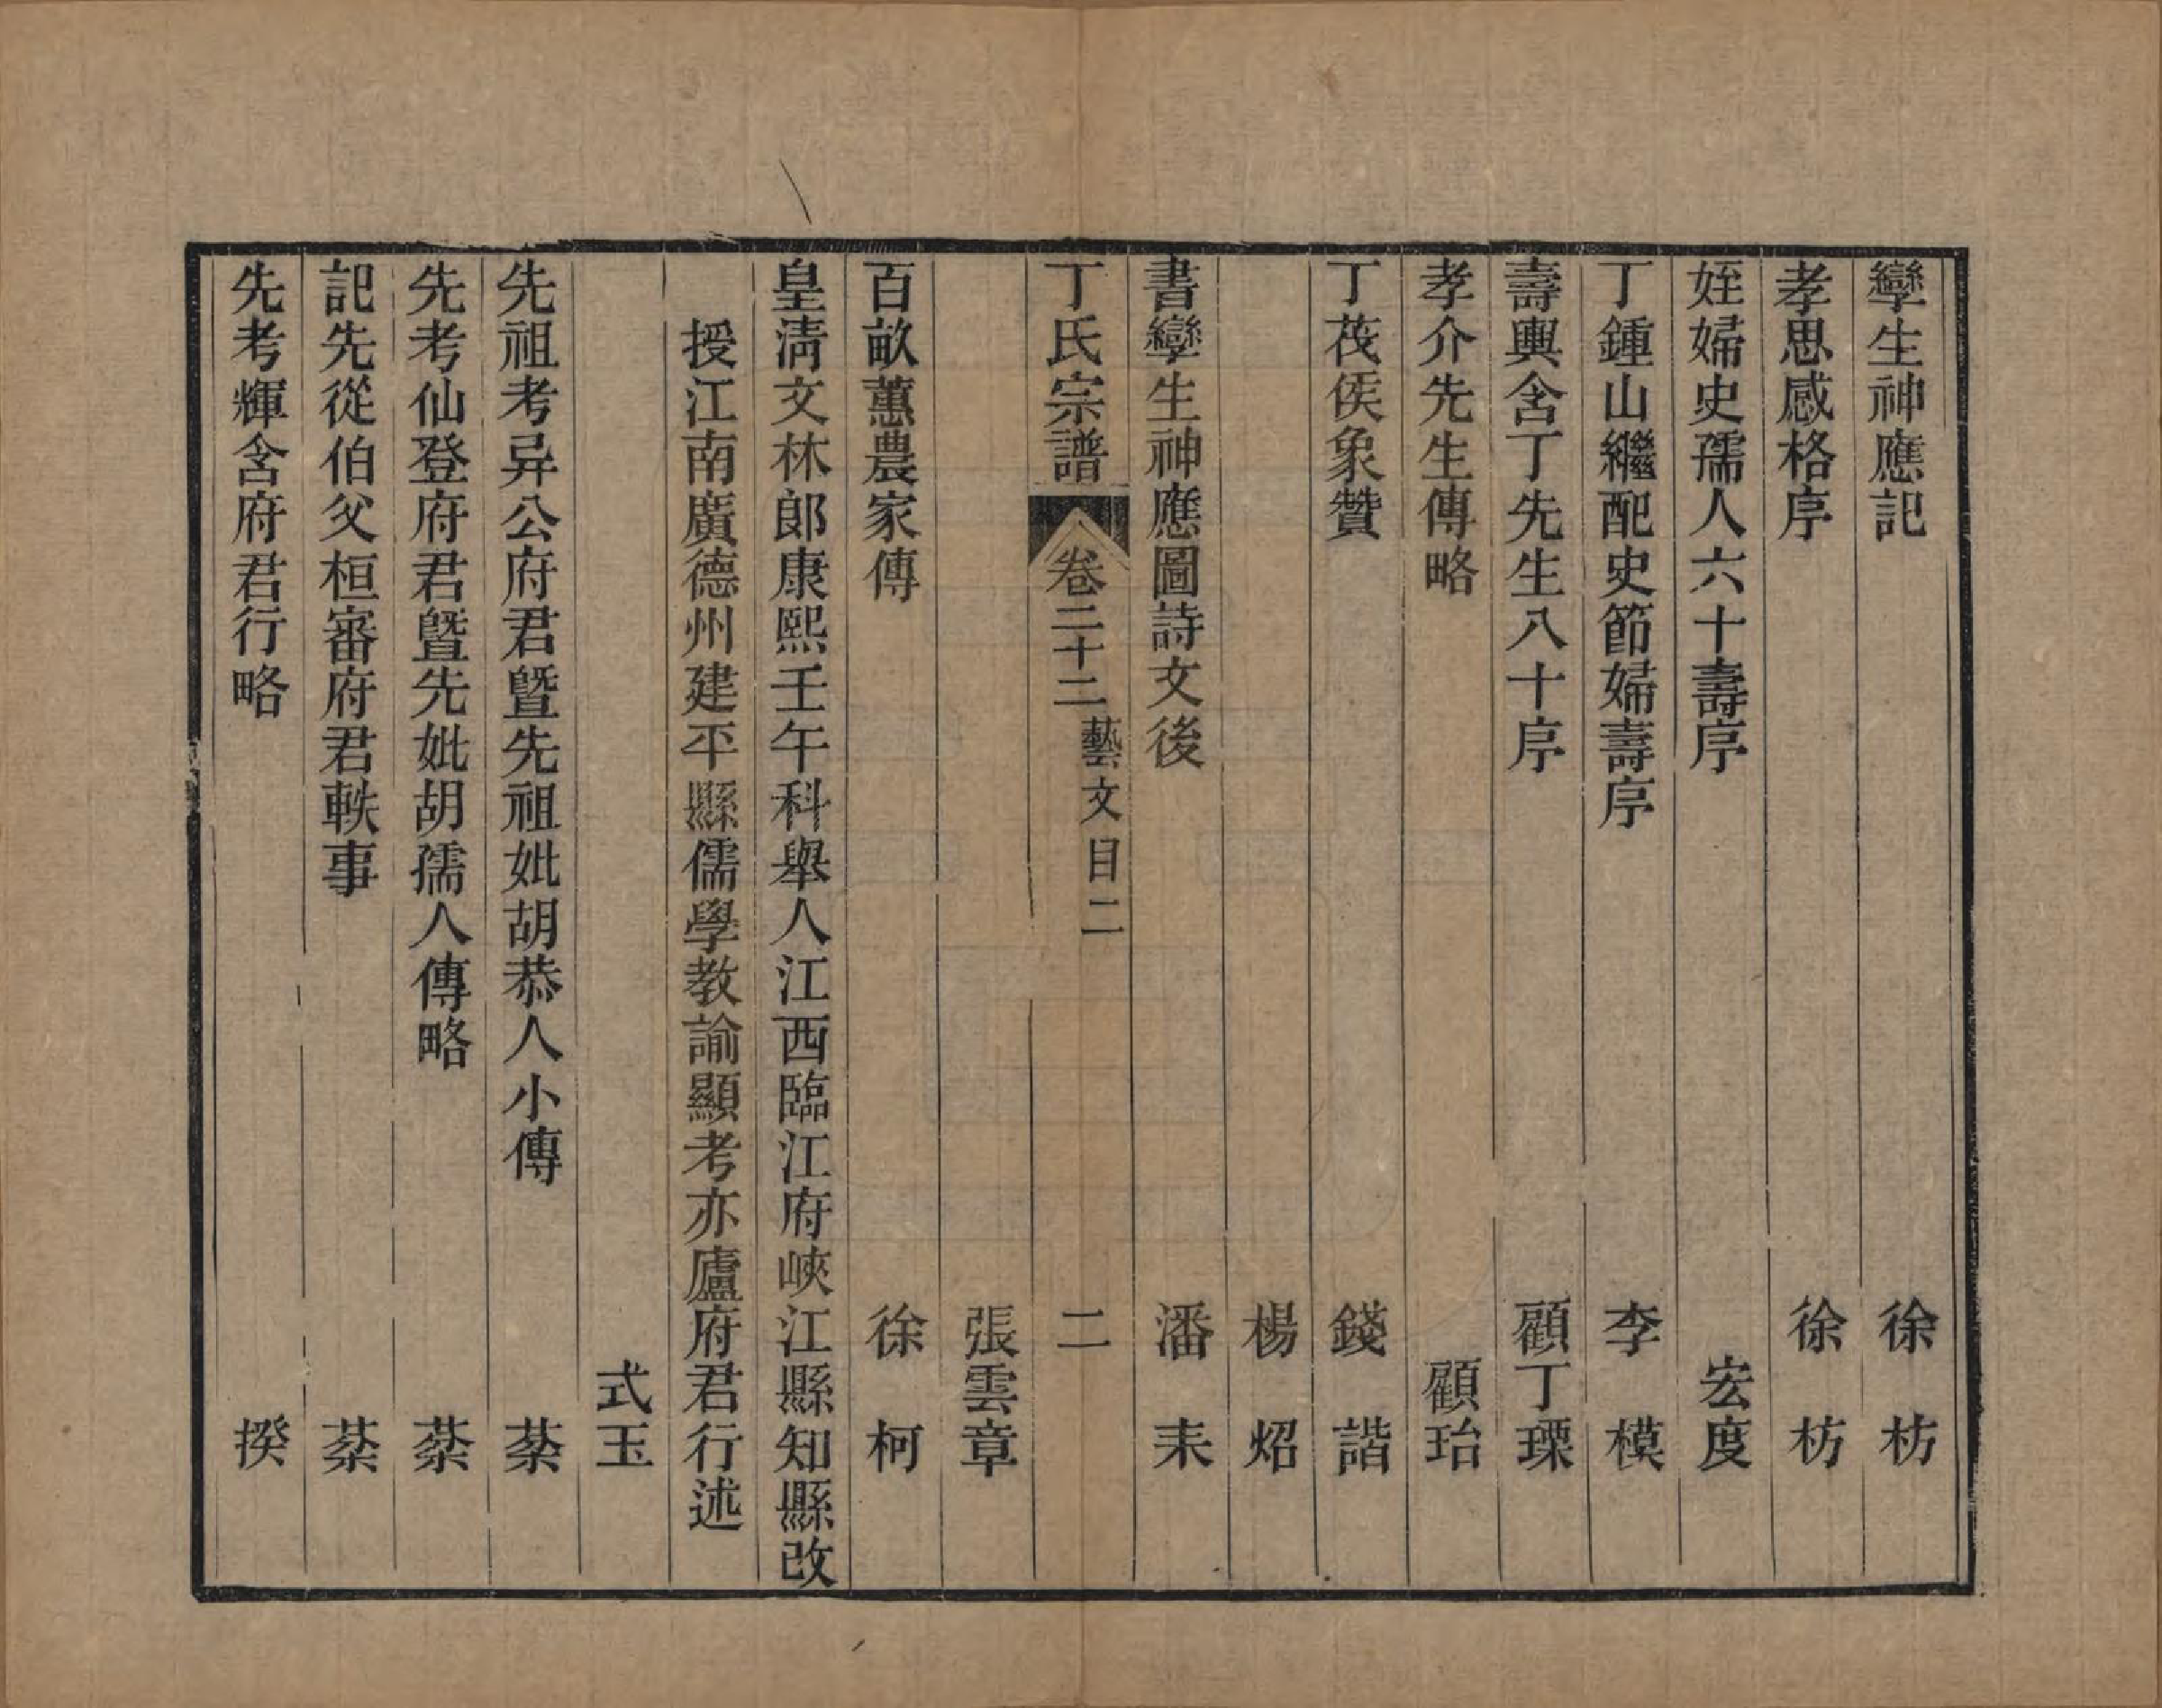 孿生神應記　徐枋
孝思感格序　徐枋
姪婦史孺人六十壽序　宏度
丁鍾山繼配史節婦壽序　李模
壽輿含丁先生八十序　顧丁瑮
孝介先生傳略　顧珆
丁茷侯象贊　錢諧
楊炤
書孿生神應圖詩文後　潘耒
丁氏宗譜　卷二十二　藝文目二　二
張雲章
百畝蕙農家傳　徐柯
皇淸文林郎康熙壬午科舉人江西臨江府峽江縣知縣改
授江南廣德州建平縣儒學教諭顯考亦廬府君行述
式玉
先祖考异公府君曁先祖妣胡恭人小傳　蓥
先考仙登府君曁先妣胡孺人傳略　蓥
記先從伯父桓審府君軼事　蓥
先考輝含府君行略　揆